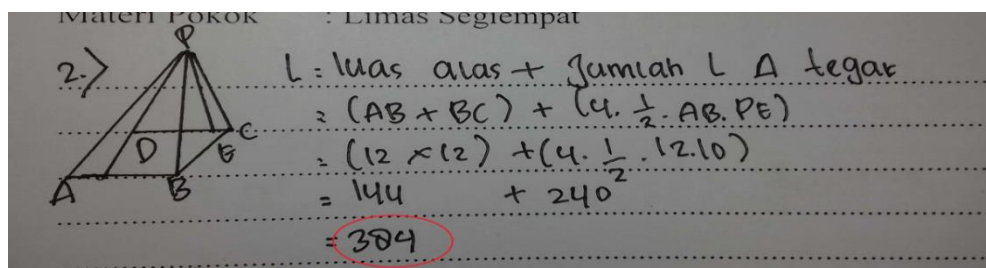 Materi Pokok : Limas Segiempat
P
2.) L = luas alas + Jumlah L Δ tegak
= (AB × BC) + (4. 1/2 . AB. PE)
= (12 × 12) + (4. 1/2 . 12.10)
= 144 + 240
= 384
D C
E
A B